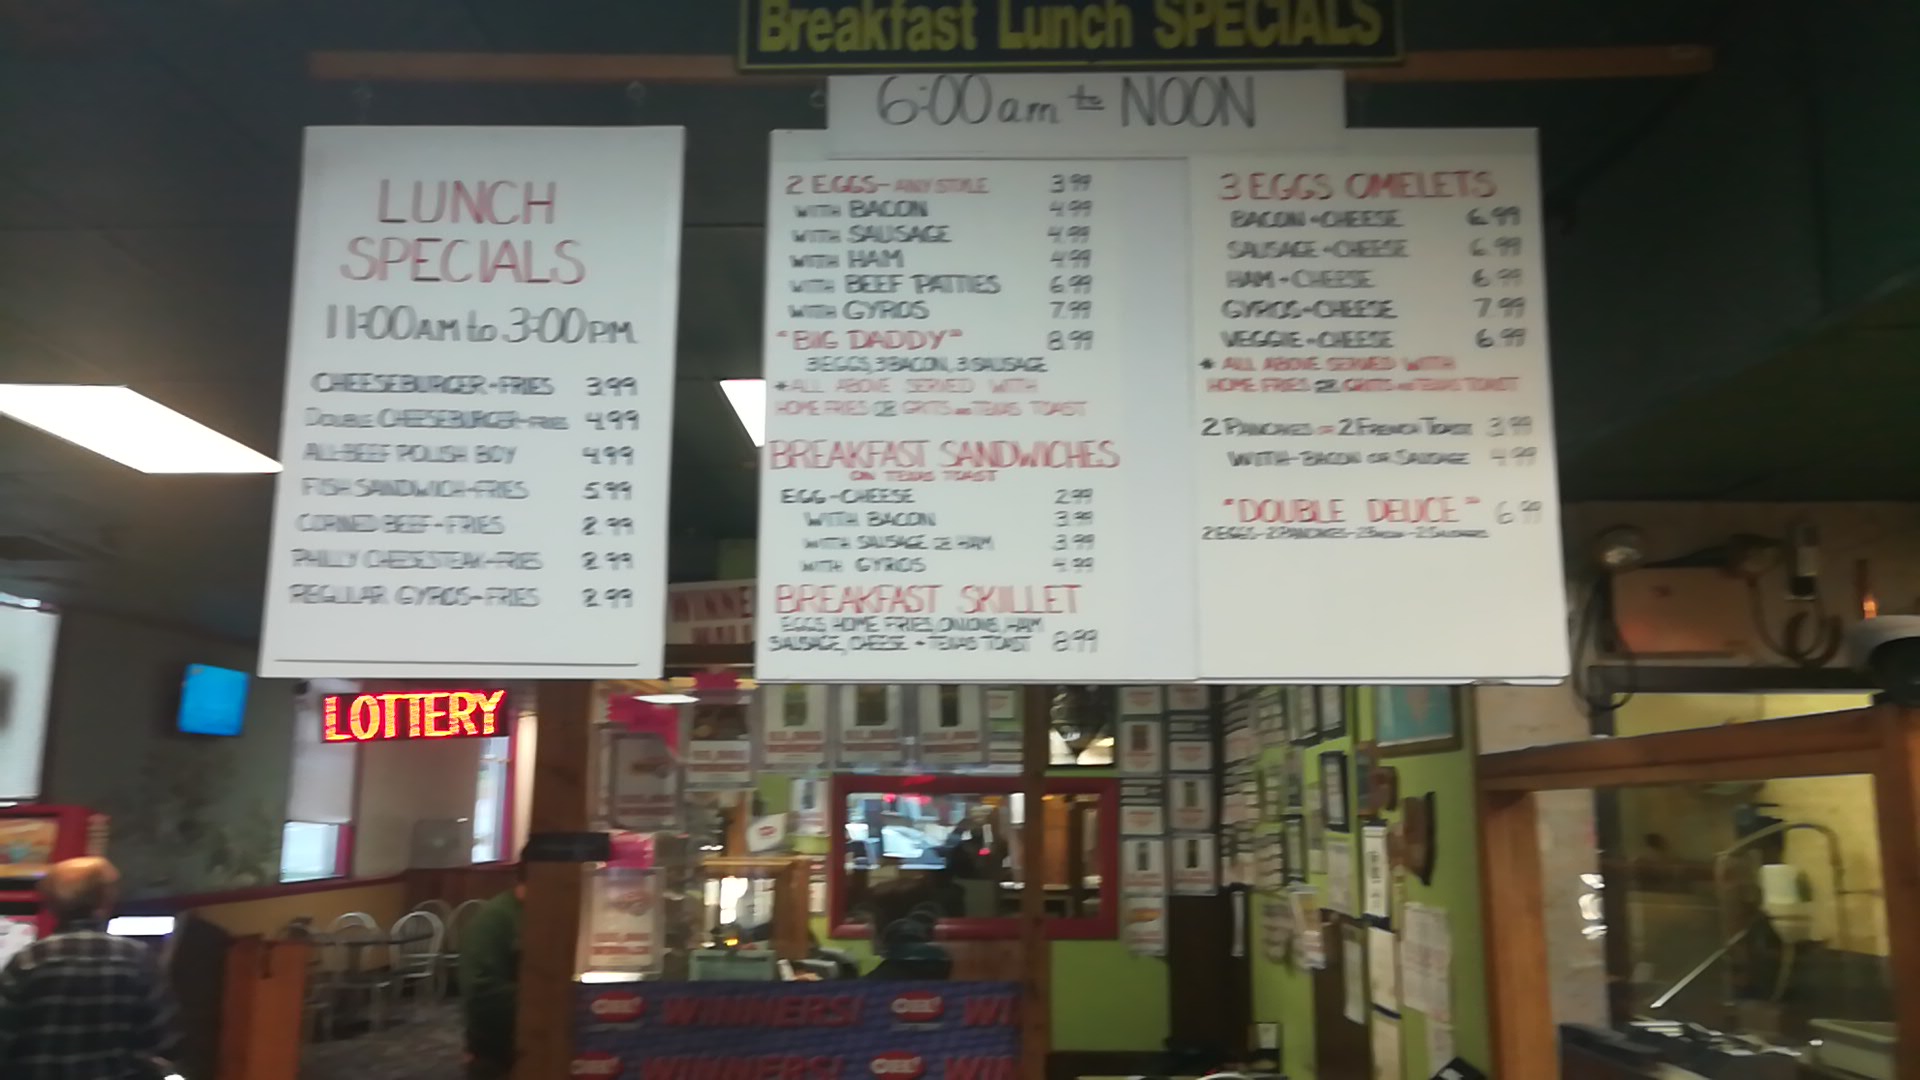 Breakfast Lunch SPECIALS
6:00am to NOON
LUNCH
SPECIALS
11:00AM to 3:00PM
CHEESEBURGER-FRIES 3.99
DOUBLE CHEESEBURGER-FRIES 4.99
ALL-BEEF POLISH BOY 4.99
FISH SANDWICH-FRIES 5.99
CORNED BEEF-FRIES 8.99
PHILLY CHEESESTEAK-FRIES 8.99
REGULAR GYROS-FRIES 8.99
2 EGGS-ANY STYLE 3.99
WITH BACON 4.99
WITH SAUSAGE 4.99
WITH HAM 4.99
WITH BEEF PATTIES 6.99
WITH GYROS 7.99
"BIG DADDY" 8.99
3 EGGS, 3 BACON, 3 SAUSAGE
*ALL ABOVE SERVED WITH
HOME FRIES OR GRITS and TEXAS TOAST
BREAKFAST SANDWICHES
ON TEXAS TOAST
EGG-CHEESE 2.99
WITH BACON 3.99
WITH SAUSAGE OR HAM 3.99
WITH GYROS 4.99
BREAKFAST SKILLET
EGGS, HOME FRIES, ONIONS, HAM
SAUSAGE, CHEESE + TEXAS TOAST 8.99
3 EGGS OMELETS
BACON+CHEESE 6.99
SAUSAGE+CHEESE 6.99
HAM+CHEESE 6.99
GYROS+CHEESE 7.99
VEGGIE+CHEESE 6.99
* ALL ABOVE SERVED WITH
HOME FRIES OR GRITS and TEXAS TOAST
2 PANCAKES or 2 FRENCH TOAST 3.99
WITH-BACON OR SAUSAGE 4.99
"DOUBLE DEUCE" 6.99
2 EGGS-2 PANCAKES-2 BACON-2 SAUSAGE
LOTTERY
WINNERS!
WINNERS!